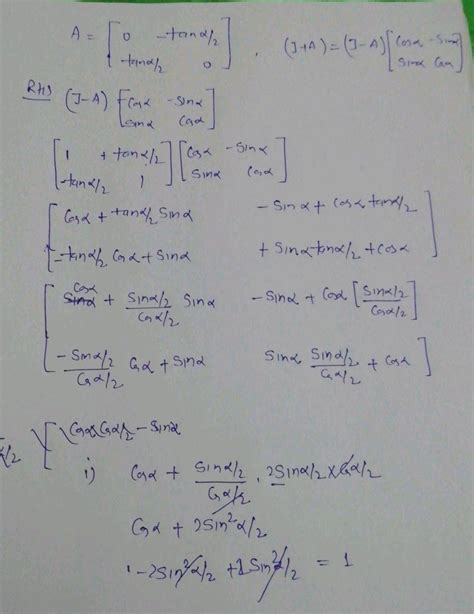 A = [ 0 -tanα/2 , (I+A) = (I-A) [ Cosα -Sinα
tanα/2 0 ] Sinα Cosα ]
RHS (I-A) [ Cosα -Sinα
Sinα Cosα ]
[ 1 +tanα/2 ] [ Cosα -Sinα
-tanα/2 1 ] Sinα Cosα ]
[ Cosα + tanα/2 Sinα -Sinα + Cosα tanα/2
-tanα/2 Cosα + Sinα + Sinα tanα/2 + Cosα ]
[ Cosα + Sinα/2 / Cosα/2 Sinα -Sinα + Cosα [ Sinα/2 / Cosα/2 ]
-Sinα/2 / Cosα/2 Cosα + Sinα Sinα Sinα/2 / Cosα/2 + Cosα ]
Cosα Cosα/2 - Sinα
α/2
i) Cosα + Sinα/2 / Cosα/2 . 2Sinα/2 × Cosα/2
Cosα + 2Sin²α/2
1 - 2Sin²α/2 + 2Sin²α/2 = 1